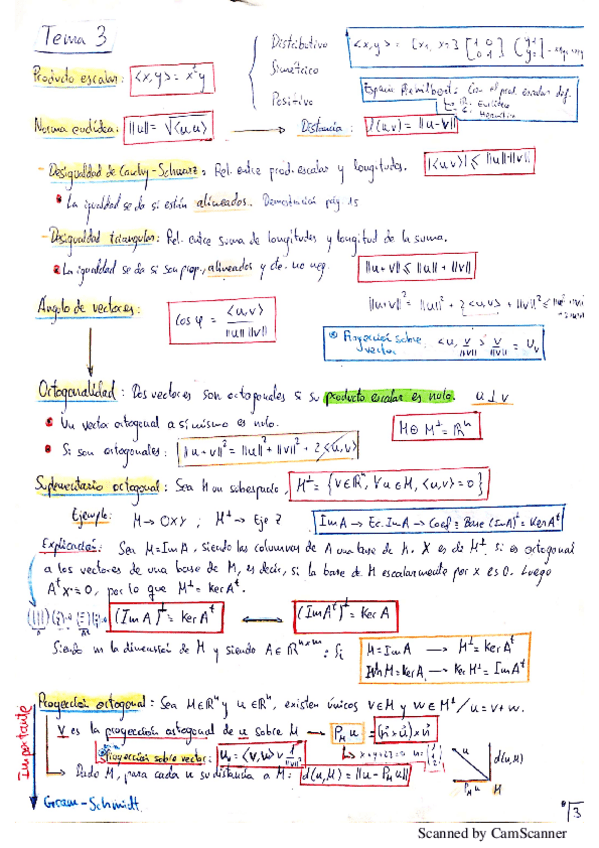 Tema 3
Distributivo
Simétrico
Positivo
Producto escalar: <x,y> = xᵗy
Espacio Prehilbert: Con el prod. escalar def.
Norma euclídea: ||u|| = √<u,u> → Distancia: d(u,v) = ||u-v||
- Desigualdad de Cauchy-Schwarz: Rel. entre prod. escalar y longitudes. |<u,v>| ≤ ||u||·||v||
La igualdad se da si están alineados. Demostración pág. 15
- Desigualdad triangular: Rel. entre suma de longitudes y longitud de la suma.
La igualdad se da si son prop., alineados y cte. no neg. ||u+v|| ≤ ||u|| + ||v||
Ángulo de vectores: cos φ = <u,v> / ||u|| ||v||
||u+v||² = ||u||² + 2<u,v> + ||v||² ≤
Proyección sobre vector <u, v/||v||> v/||v|| = Uᵥ
Octogonalidad: Dos vectores son octogonales si su producto escalar es nulo. u ⊥ v
Un vector octogonal a sí mismo es nulo. M ⊕ M⊥ = ℝⁿ
Si son octogonales: ||u+v||² = ||u||² + ||v||² + 2<u,v>
Suplementario octogonal: Sea M un subespacio, M⊥ = {v∈ℝⁿ, ∀u∈M, <u,v> = 0}
Ejemplo: M → OXY ; M⊥ → Eje Z
ImA → Ec. ImA → Coef = Base (ImA)⊥ = KerAᵗ
Explicación: Sea M = ImA, siendo las columnas de A una base de M. X es de M⊥ si es octogonal
a los vectores de una base de M, es decir, si la base de M escalarmente por x es 0. Luego
Aᵗx = 0, por lo que M⊥ = KerAᵗ.
(ImA)⊥ = KerAᵗ ↔ (ImAᵗ)⊥ = KerA
Siendo m la dimensión de M y siendo A∈ℝⁿˣᵐ: Si
M = ImA → M⊥ = KerAᵗ
M = KerA → KerM⊥ = ImAᵗ
Proyección octogonal: Sea M∈ℝⁿ y u∈ℝⁿ, existen únicos v∈M y w∈M⊥ / u = v + w.
Importante
v es la proyección ortogonal de u sobre M → P_M u = (n×u)×n
Proyección sobre vector: Uᵥ = <v,u> v 1/||v||²
x+y+z=0
Dado M, para cada u su distancia a M: d(u,M) = ||u - P_M u||
u
d(u,M)
P_M u
M
Gram-Schmidt.
Scanned by CamScanner